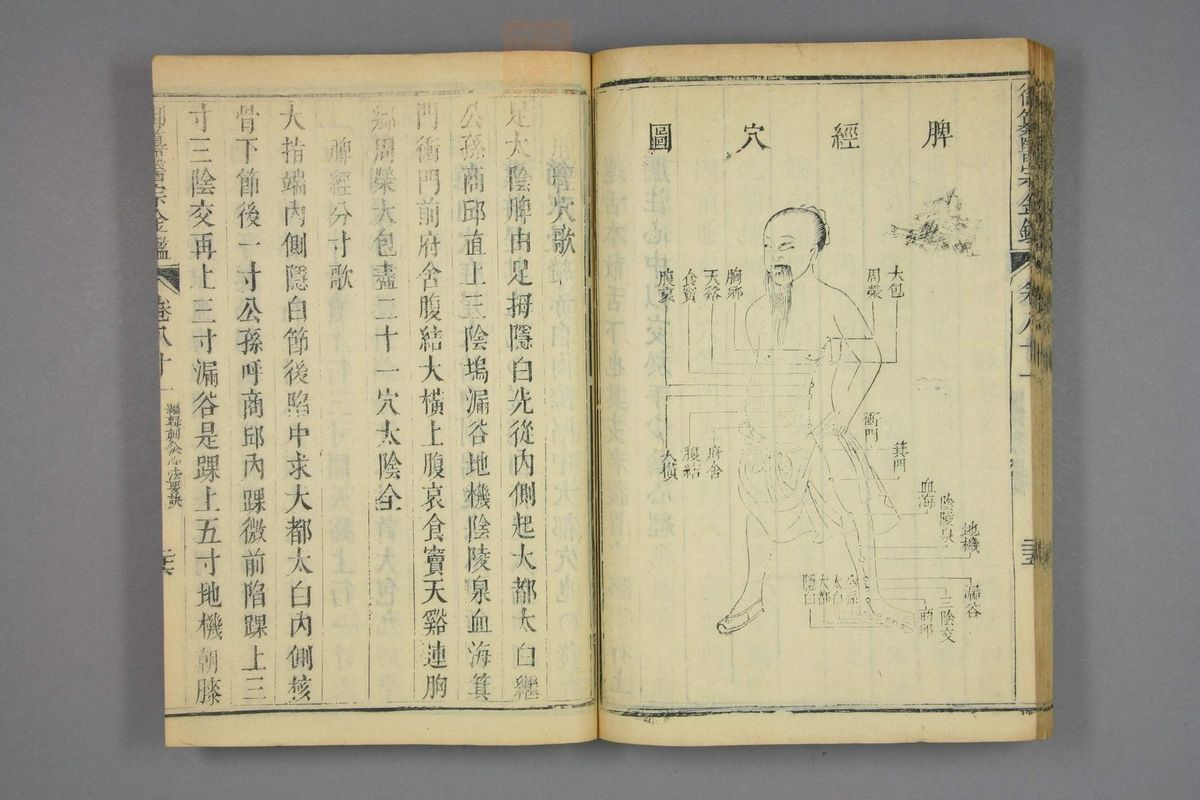 脾經穴圖
大包
周榮
胸鄉
天谿
食竇
腹哀
衝門
箕門
府舍
腹結
大橫
血海
陰陵泉
地機
漏谷
三陰交
商邱
公孫
太白
大都
隱白
卷八十一
穴歌
足太陰脾由足拇隱白先從內側起大都太白繼
公孫商邱直上三陰塢漏谷地機陰陵泉血海箕
門衝門前府舍腹結大橫上腹哀食竇天谿連胸
鄉周榮大包盡二十一穴太陰全
脾經分寸歌
大指端內側隱白節後陷中求大都太白內側核
骨下節後一寸公孫呼商邱內踝微前陷踝上三
寸三陰交再上三寸漏谷是踝上五寸地機朝膝
御纂醫宗金鑑
卷八十一
編輯刺灸心法要訣